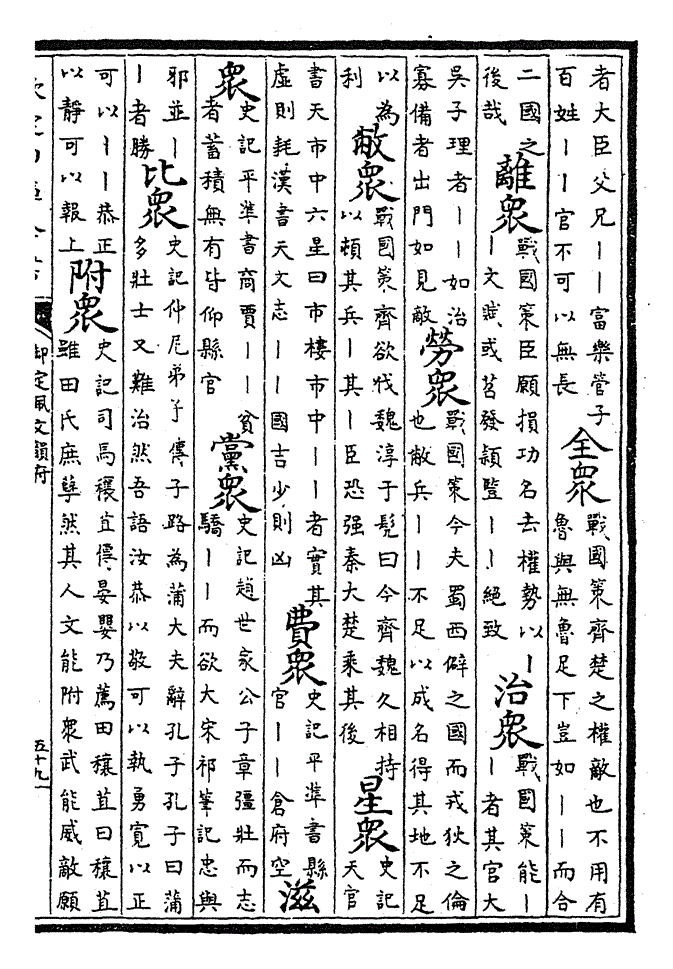 者大臣父兄丨丨富樂管子
百姓丨丨官不可以無長
全衆
戰國策齊楚之權敵也不用有
魯與無魯足下豈如丨丨而合
二國之
後哉
離衆
戰國策臣願損功名去權勢以丨
丨文賦或苕發穎豎丨丨絕致
治衆
戰國策能丨
丨者其官大
吳子理者丨丨如治
寡備者出門如見敵
勞衆
戰國策今夫蜀西僻之國而戎狄之倫
也敝兵丨丨不足以成名得其地不足
以為
利
敝衆
戰國策齊欲伐魏淳于髠曰今齊魏久相持
以頓其兵丨其丨臣恐强秦大楚乘其後
星衆
史記
天官
書天市中六星曰市樓市中丨丨者實其
虛則耗漢書天文志丨丨國吉少則凶
費衆
史記平準書縣
官丨丨倉府空
滋
衆
史記平準書商賈丨丨貧
者蓄積無有皆仰縣官
黨衆
史記趙世家公子章彊壯而志
驕丨丨而欲大宋祁筆記忠與
邪並丨
丨者勝
比衆
史記仲尼弟子傳子路為蒲大夫辭孔子孔子曰蒲
多壯士又難治然吾語汝恭以敬可以執勇寬以正
可以丨丨恭正
以靜可以報上
附衆
史記司馬穰苴傳晏嬰乃薦田穰苴曰穰苴
雖田氏庶孽然其人文能附衆武能威敵願
御定佩文韻府
五十九